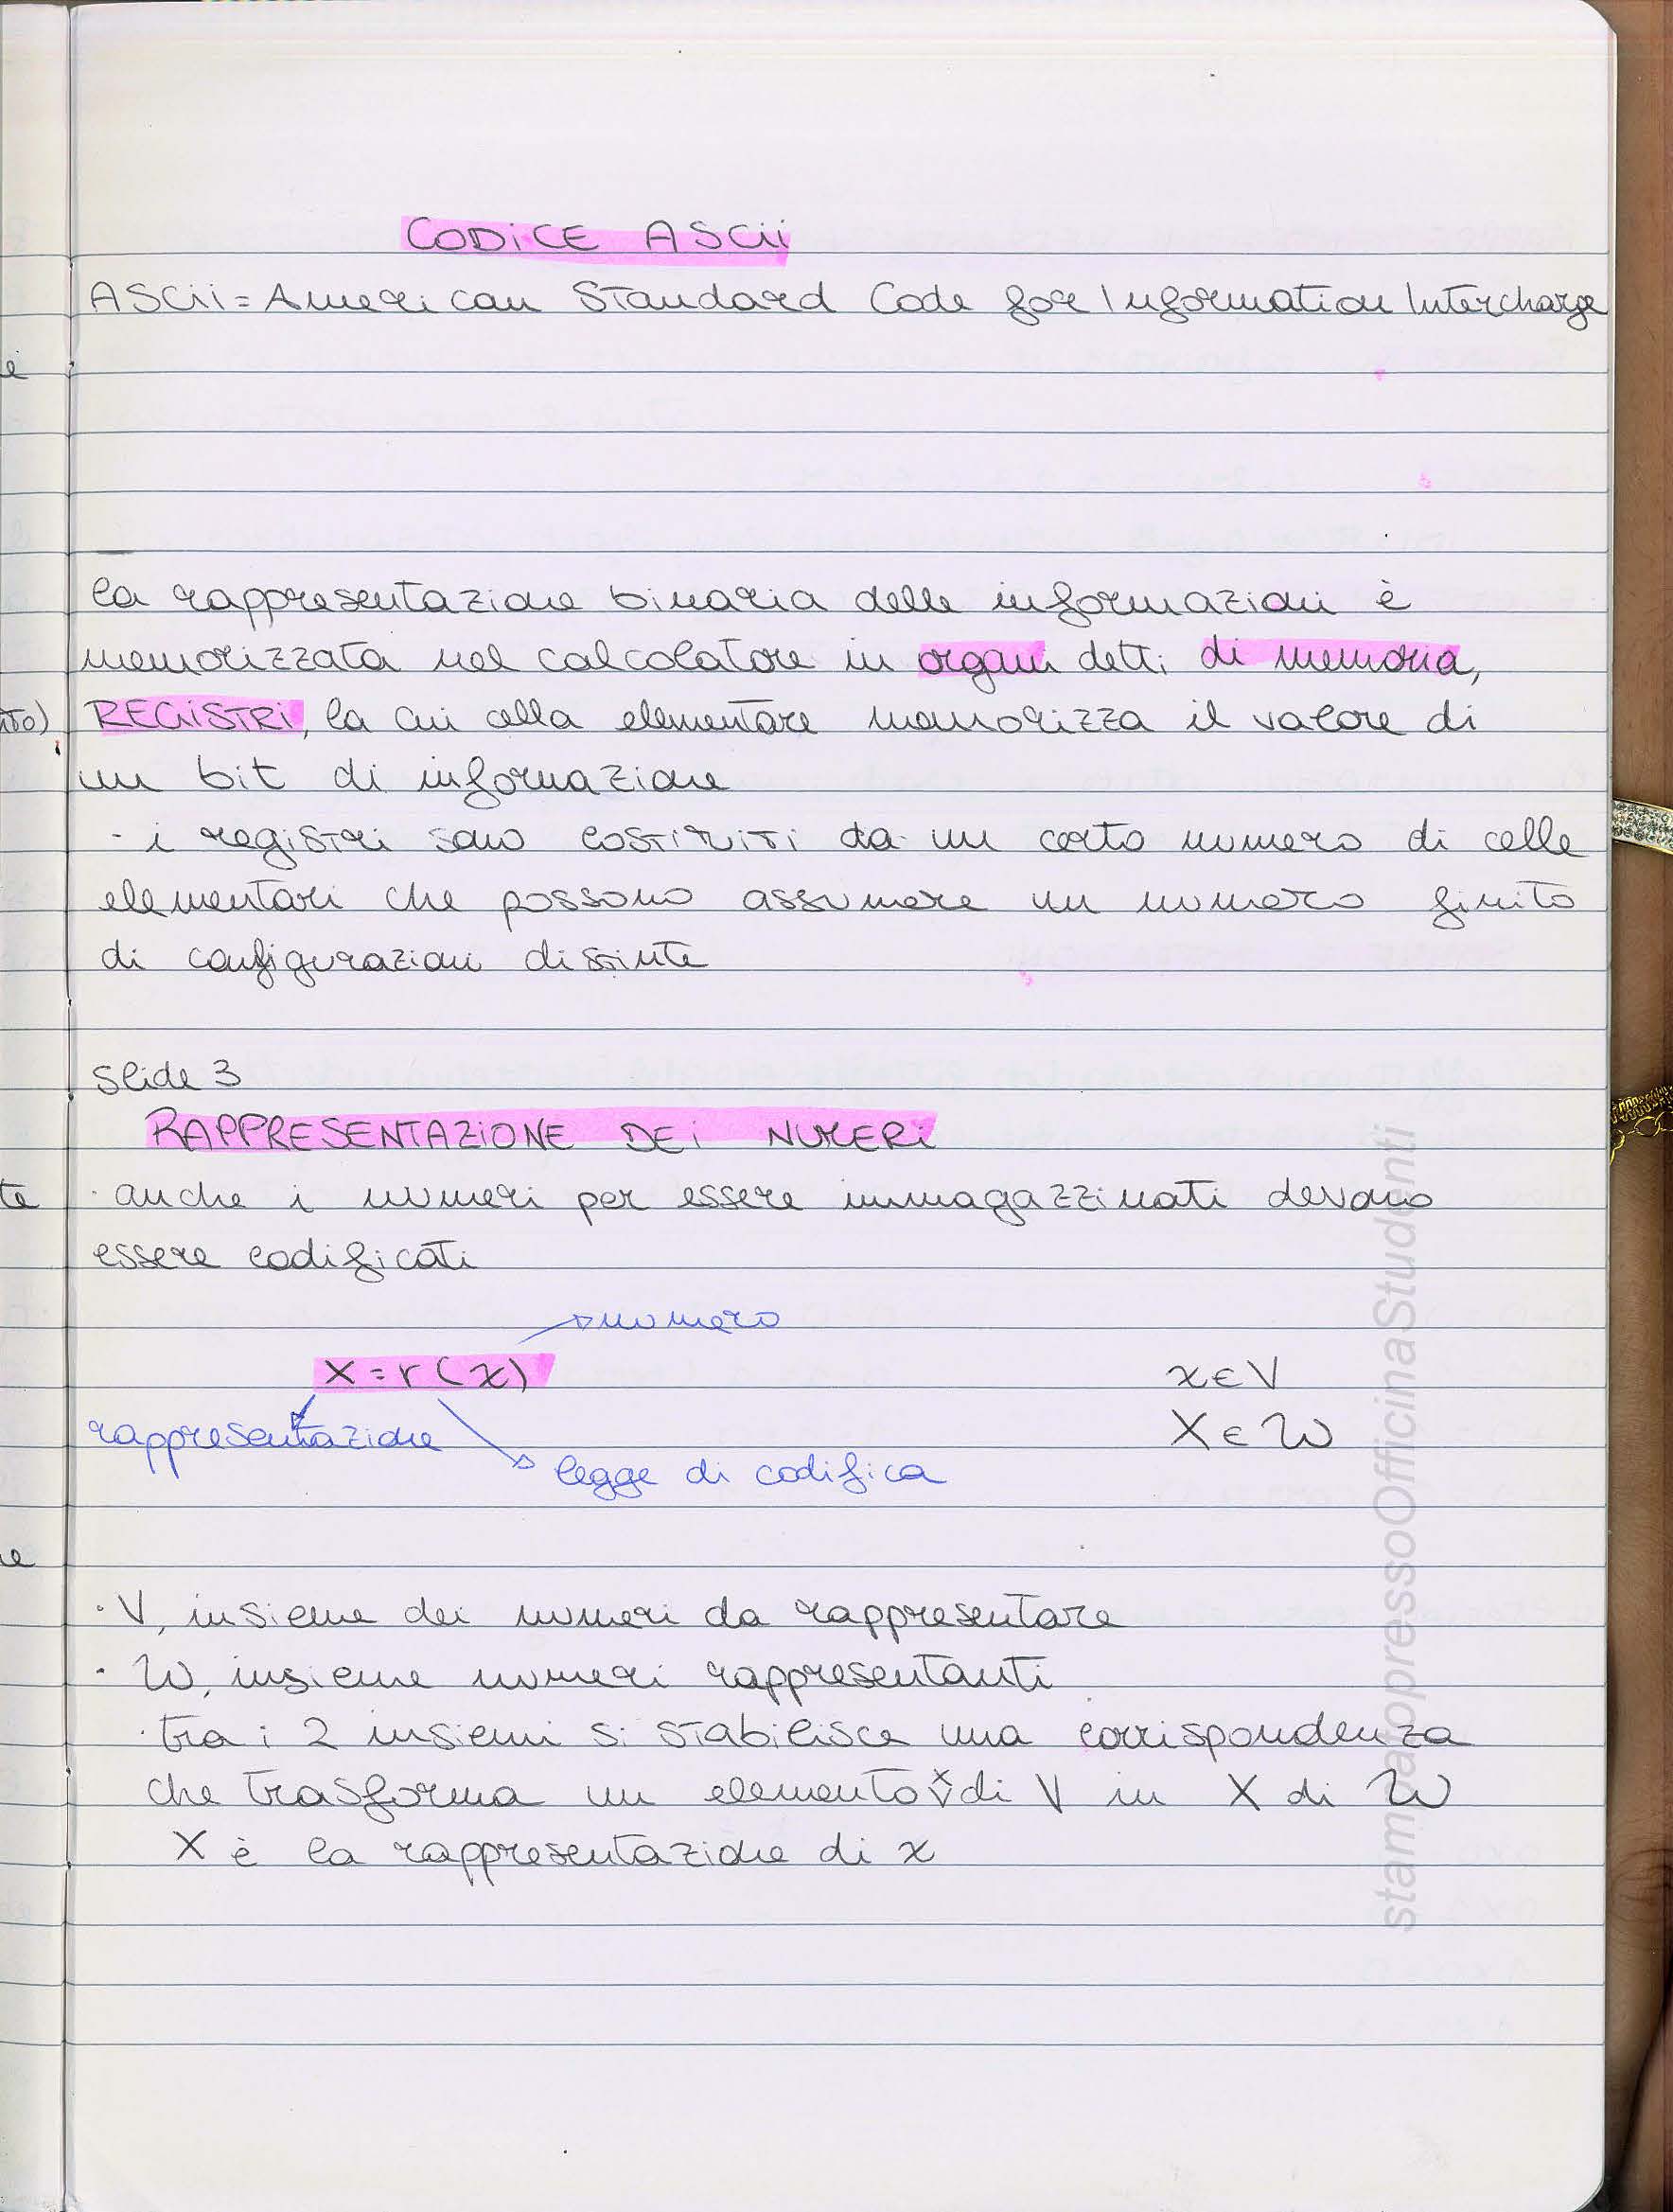 CODICE ASCii
ASCii = American Standard Code for Information Intercharge
e
la rappresentazione binaria delle informazioni è
memorizzata nel calcolatore in organi detti di memoria,
nto) REGISTRI, la cui cella elementare memorizza il valore di
un bit di informazione
- i registri sono costituiti da un certo numero di celle
elementari che possono assumere un numero finito
di configurazioni distinte
slide 3
RAPPRESENTAZIONE DEi NUMERi
te · anche i numeri per essere immagazzinati devono
essere codificati
numero
X = r(x) x ∈ V
rappresentazione X ∈ W
legge di codifica
e
· V, insieme dei numeri da rappresentare
· W, insieme numeri rappresentanti
· tra i 2 insiemi si stabilisce una corrispondenza
che trasforma un elemento x di V in X di W
X è la rappresentazione di x
stampaoppressoOfficinaStudenti